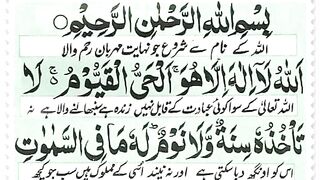 بِسْمِ اللهِ الرَّحْمٰنِ الرَّحِيْمِ ○
اللہ کے نام سے شروع جو نہایت مہربان رحم والا
اَللهُ لَاۤ اِلٰهَ اِلَّا هُوَۚ اَلْحَیُّ الْقَیُّوْمُ ۚ۬ لَا
اللہ تعالیٰ کے سوا کوئی عبادت کے قابل نہیں زندہ ہے سنبھالنے والا ہے نہ
تَاْخُذُهٗ سِنَةٌ وَّلَا نَوْمٌ ؕ لَهٗ مَا فِی السَّمٰوٰتِ
اس کو اونگھ دبا سکتی ہے اور نہ نیند اسی کے مملوک ہیں سب جو کچھ